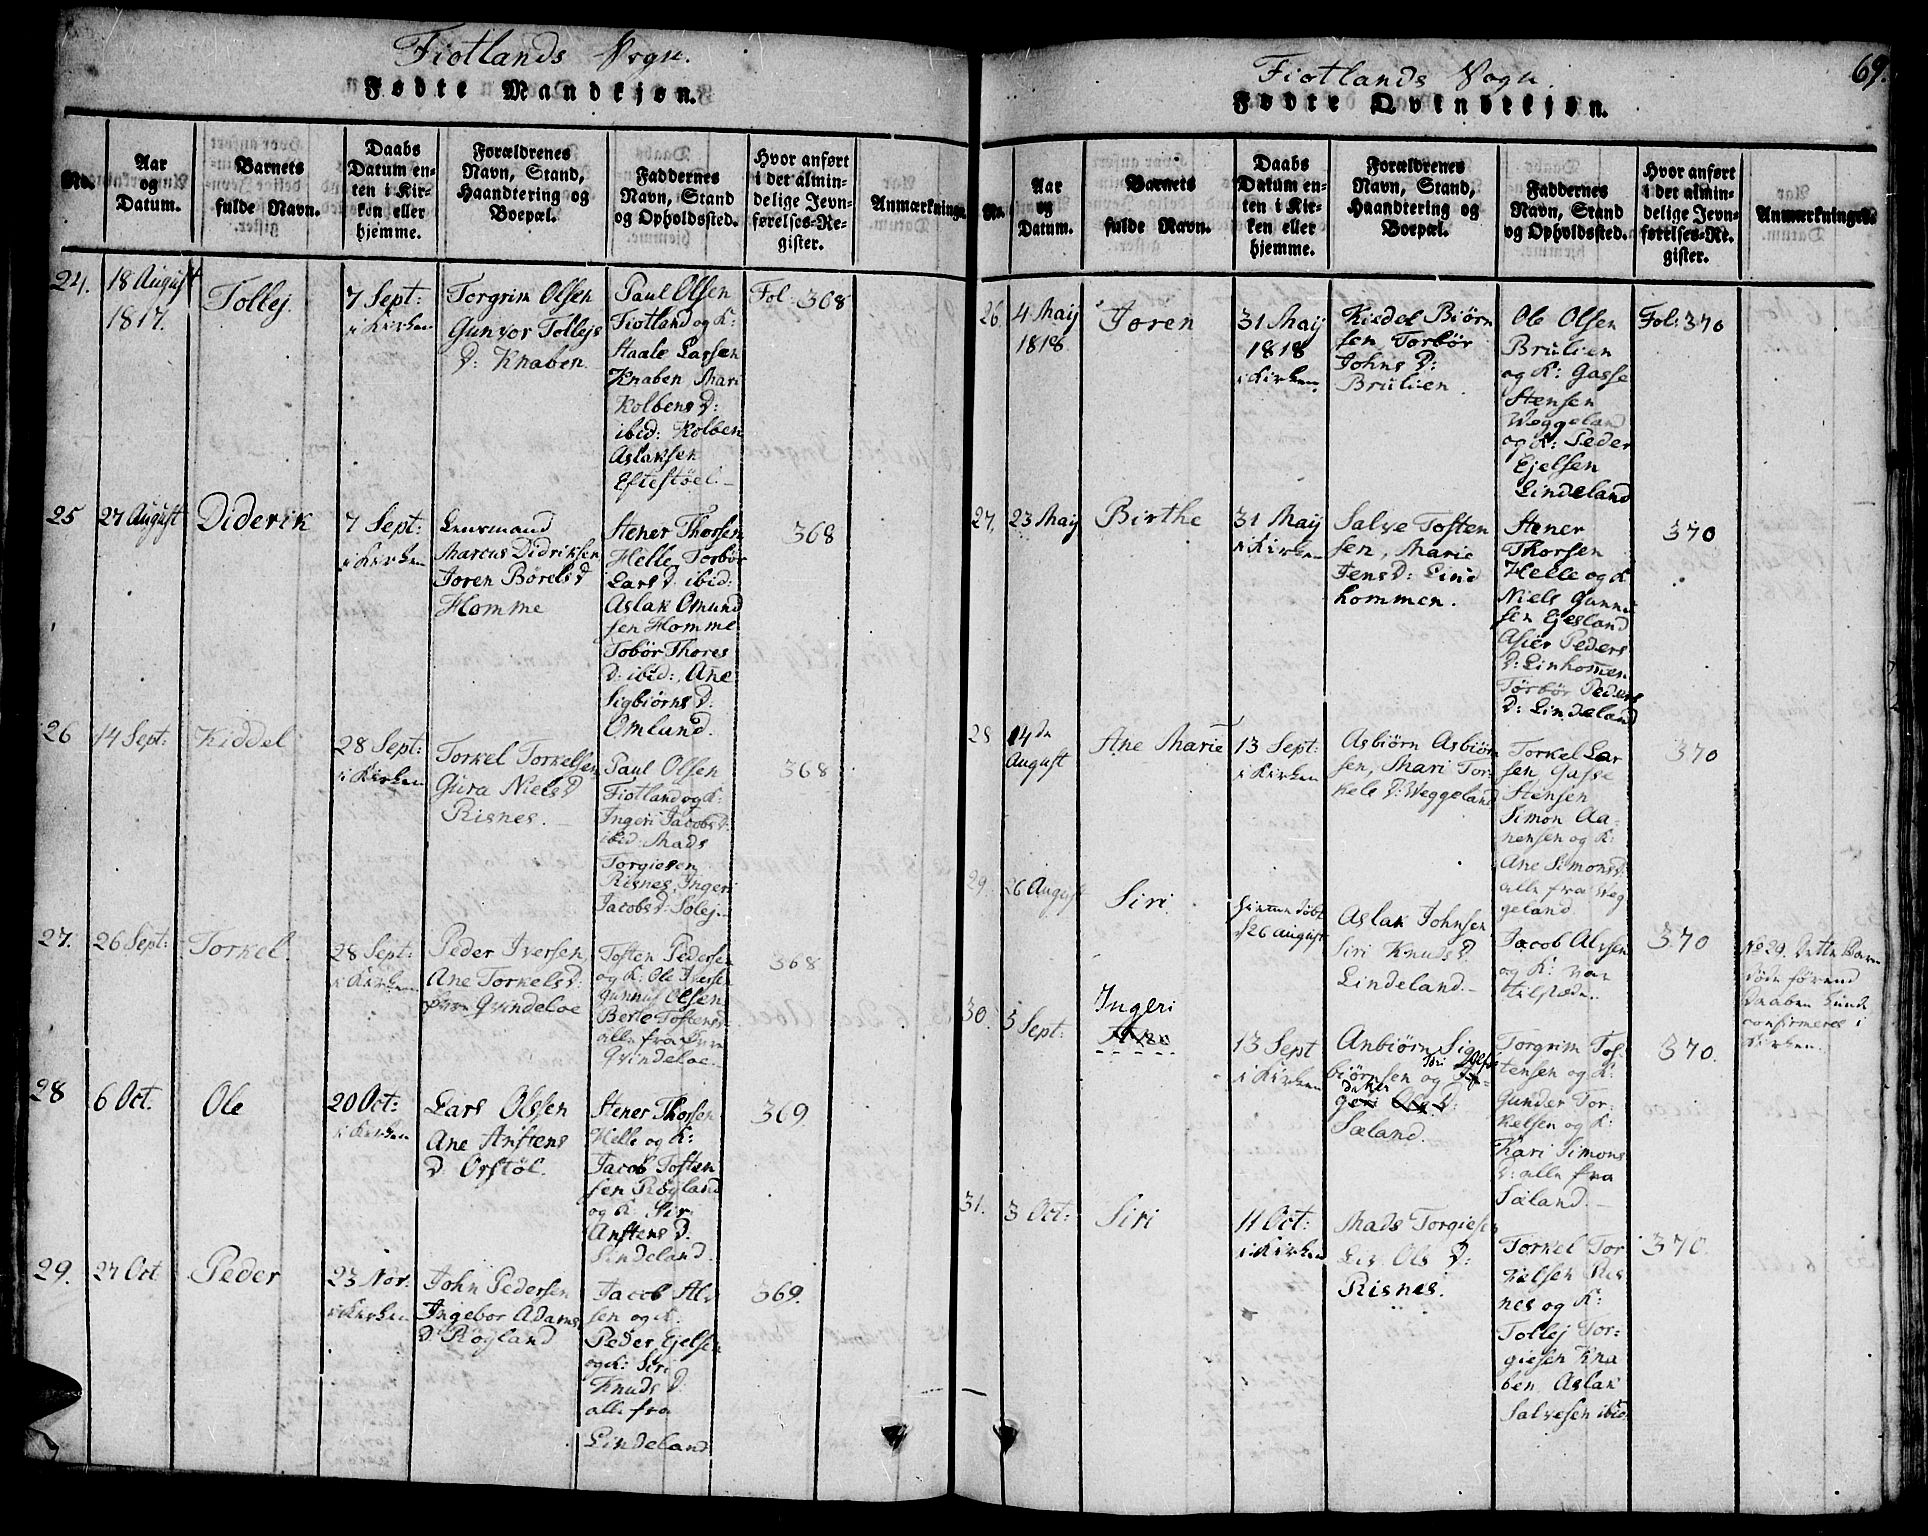 Fiotlands Sogn.
Fødte Mandkjøn.
No.
Aar
og
Datum.
Barnets
fulde Navn.
Daabs
Datum en-
ten i Kir-
ken eller
hjemme.
Forældrenes
Navn, Stand,
Haandtering og
Boepæl.
Faddernes
Navn, Stand
og Opholdssted.
Hvor anført
i det almin-
delige Jevn-
førelses-Re-
gister.
Anmærkninge
24.
18 August
1817.
Tollej
7 Sept:
i Kirken
Torgrim Olsen
Gunvor Tollejs
D: Knaben.
Paul Olsen
Fiotland og K:
Staale Larsen
Knaben Mari
Kolbens D:
ibid: Kolben
Aslaksen
Eftestøel.
Fol: 368
25
27 August
Diderik
7 Sept:
i Kirken
Lensmand
Marcus Didriksen
Joren Børels D
Homme
Stener Thorsen
Helle Torbør
Lars D. ibid:
Aslak Omund
sen Homme
Tobør Thores
D: ibid:, Ane
Sigbiørns D:
Omlund.
368
26
14 Sept:
Kiddel
28 Sept:
i Kirken
Torkel Torkelsen
Gura Niels D
Risnes.
Paul Olsen
Fiotland og K:
Ingeri Jacobs D:
ibid Mads
Torgiesen
Risnes, Ingeri
Jacobs D: Solej.
368
27.
26 Sept:
Torkel.
28 Sept:
i Kirken
Peder Iversen,
Ane Torkels D:
Qvindeloe
Tosten Pedersen
og K: Ole Iversen
Gunnuf Olsen
Berte Tostens D
alle fra
Qvindeloe.
368
28
6 Oct.
Ole
20 Oct:
i Kirken
Lars Olssen
Ane Anstens
D: Orstøl.
Stener Thorsen
Helle og K:
Jacob Tosten
sen Røyland
og K: Sir
Anstens D.
Lindeland.
369
29.
27 Oct
Peder
23 Nov:
i Kirken
John Pedersen
Ingebor Adams
D: Røyland
Jacob Alv
sen og K:
Peder Ejelsen
og K: Siri
Knuds D:
alle fra
Lindeland
369.
69.
Fiotlands Sogn.
Fødte Qvindekjøn.
No.
Aar
og
Datum.
Barnets
fulde Navn.
Daabs
Datum en-
ten i Kir-
ken eller
hjemme.
Forældrenes
Navn, Stand,
Haandtering og
Boepæl.
Faddernes
Navn, Stand
og Opholdssted.
Hvor anført
i det almin-
delige Jevn-
førelses-Re-
gister.
Anmærkninger.
26.
4 May
1818
Joren
31 May
1818
i Kirken
Kiedel Biørn
sen Torbør
Johns D:
Brulien
Ole Olsen
Brulien
og K: Gasse
Stensen
Weggeland
og K: Peder
Ejelsen
Lindeland
Fol: 370
27.
23 May
Birthe
31 May
i Kirken
Salve Tosten
sen, Marie
Jens D: Lind
hommen.
Stener
Thorsen
Helle og K
Niels Gunnu
sen Ejesland
Asier Peders
D: Linhomen
Torbør Peders
D: Lindeland
370
28
14de
August
Ane Marie
13 Sept:
i Kirken
Asbiørn Asbiørn
sen, Mari Tor-
kels D: Weggeland
Torkel Lar
sen Gasse
Stensen
Simon Aa-
nensen og K:
Ane Simons D:
alle fra Weg
geland
370
29.
26 August
Siri
hiemme døbt
d 26 August
Aslak Johnsen
Siri Knuds D.
Lindeland.
Jacob Alvsen
og K: var
tilstæde.
370
No 29. Dette Barn
døde førend
Daaben kunde
confirmeres i
Kirken.
30.
5 Sept:
Ingeri
13 Sept
i Kirken
Anbiørn Sig
biørnsen og Siri
geri Ols D:
Sæland.
Torgrim Tos-
tensen og K:
Gunder Tor-
kelsen og K:
Kari Simons
D: alle fra
Sæland.
370.
31.
3 Oct:
Siri
11 Oct:
i Kirken
Mads Torgiesen
Liv Ols D:
Risnes.
Torkel Tor-
kelsen Ris
nes og K:
Tollej Tor-
giesen Kna
ben, Aslak
Salvesen ibid
370.